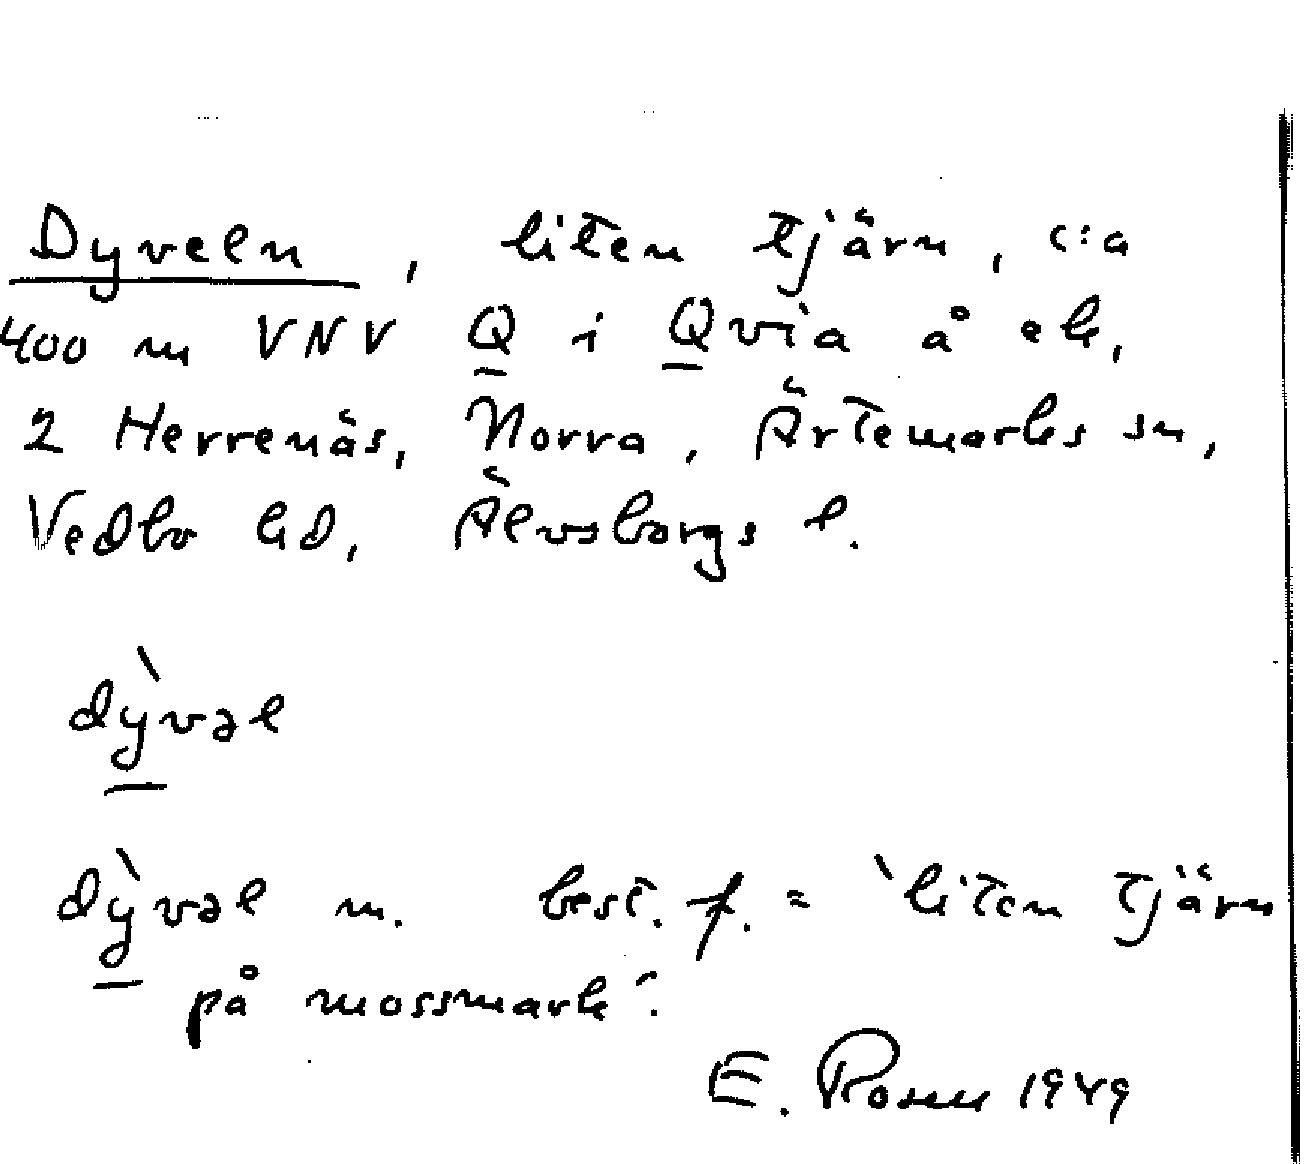 Dyveln, liten tjärn, c:a
400 m VNV Q i Qvia å ek,
2 Herrenäs, Norra, Ärtemarks sn,
Vedbo hd, Älvsborgs l.
dỳvəl
dỳvəl m. best. f. = `liten tjärn
på mossmark´.
E. Rosell 1949